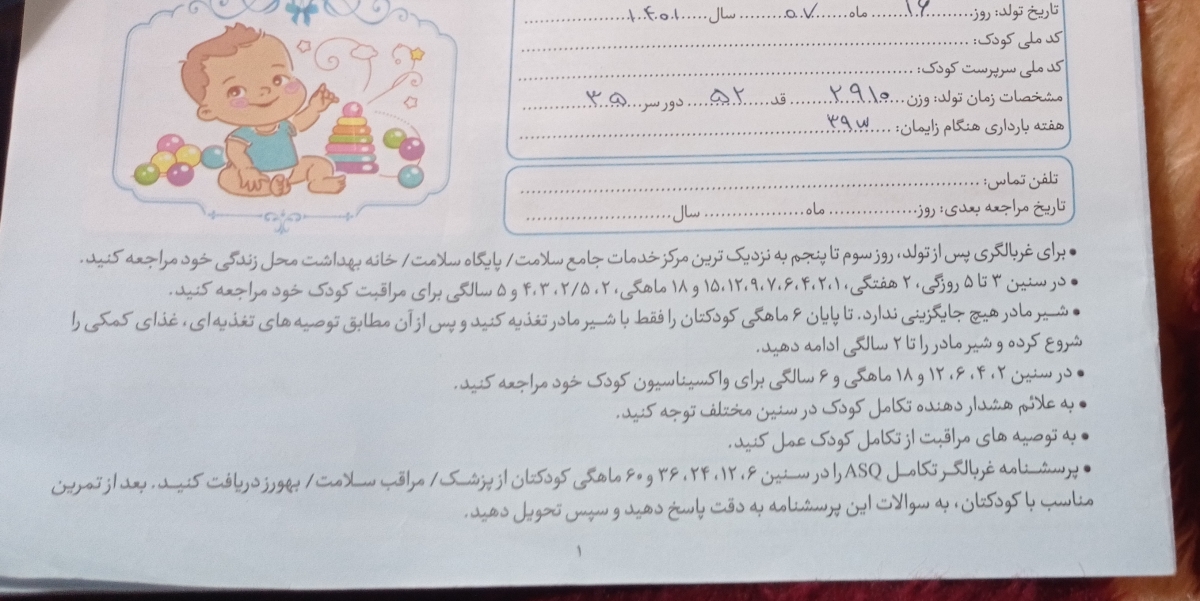 تاریخ تولد: روز ۱۶ ماه ۰۷ سال ۱۴۰۱
کد ملی کودک:
کد ملی سرپرست کودک:
مشخصات زمان تولد: وزن ۲۹۱۰ قد ۵۲ دور سر ۳۵
هفته بارداری هنگام زایمان: ۳۹w
تلفن تماس:
تاریخ مراجعه بعدی: روز ماه سال
• برای غربالگری پس از تولد، روز سوم تا پنجم به نزدیک ترین مرکز خدمات جامع سلامت/ پایگاه سلامت/ خانه بهداشت محل زندگی خود مراجعه کنید.
• در سنین ۳ تا ۵ روزگی، ۲ هفتگی، ۱،۲،۴،۶،۷،۹،۱۲،۱۵ و ۱۸ ماهگی، ۲، ۲/۵، ۳، ۴ و ۵ سالگی برای مراقبت کودک خود مراجعه کنید.
• شیر مادر هیچ جایگزینی ندارد. تا پایان ۶ ماهگی کودکتان را فقط با شیر مادر تغذیه کنید و پس از آن مطابق توصیه های تغذیه ای، غذای کمکی را
شروع کرده و شیر مادر را تا ۲ سالگی ادامه دهید.
• در سنین ۲، ۴، ۶، ۱۲ و ۱۸ ماهگی و ۶ سالگی برای واکسیناسیون کودک خود مراجعه کنید.
• به علائم هشدار دهنده تکامل کودک در سنین مختلف توجه کنید.
• به توصیه های مراقبت از تکامل کودک عمل کنید.
• پرسشنامه غربالگر تکامل ASQ را در سنین ۶، ۱۲، ۲۴، ۳۶ و ۶۰ ماهگی کودکتان از پزشک/ مراقب سلامت/ بهورز دریافت کنید. بعد از تمرین
مناسب با کودکتان، به سوالات این پرسشنامه به دقت پاسخ دهید و سپس تحویل دهید.
۱